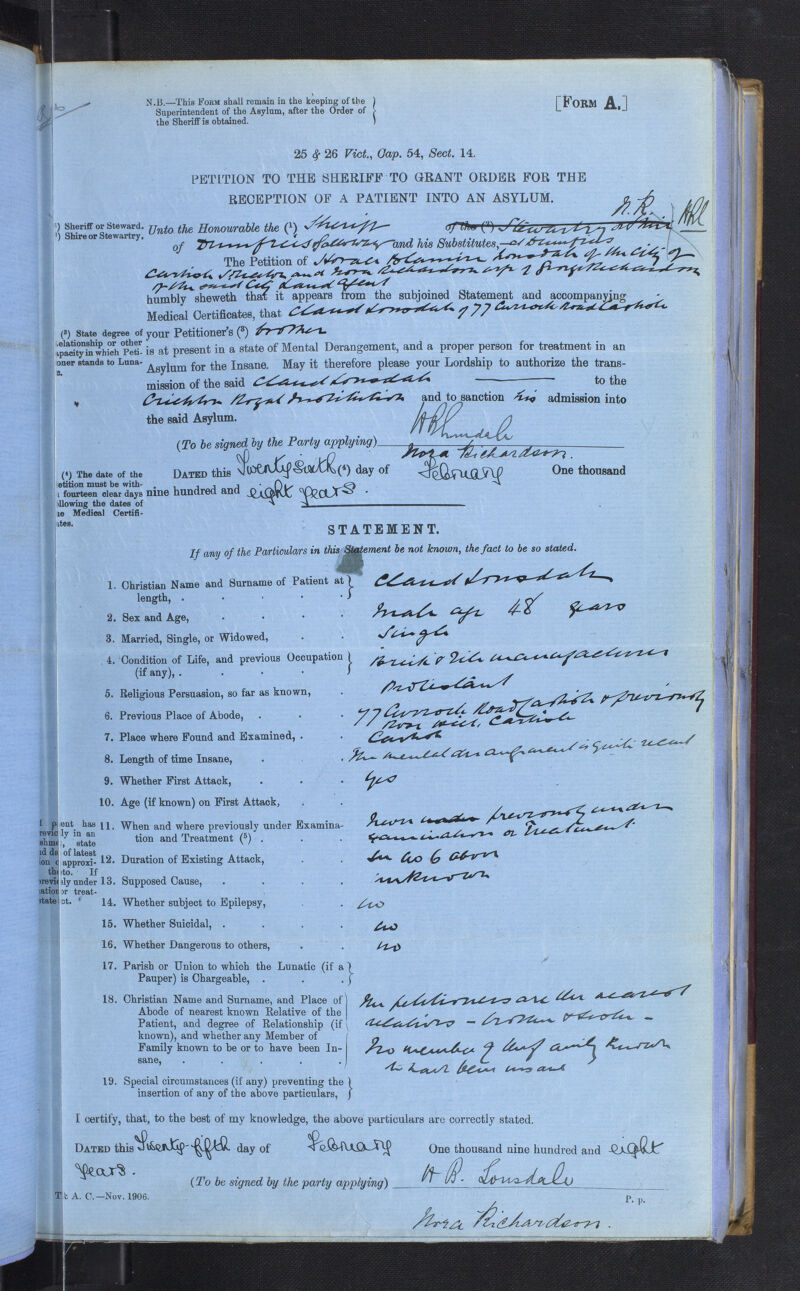 N.B.—This Form shall remain in the keeping of the
Superintendent of the Asylum, after the Order of
the Sheriff is obtained.
[Form A.]
25 & 26 Vict., Cap. 54, Sect. 14.
PETITION TO THE SHERIFF TO GRANT ORDER FOR THE
RECEPTION OF A PATIENT INTO AN ASYLUM.
N.R.
) Sheriff or Steward.
) Shire or Stewartry.
Unto the Honourable the (1) Sheriff of the (2) Stewartry
of Dumfries & Galloway and his Substitutes, at Dumfries
The Petition of Horace Blamire Lonsdale of the City of
Carlisle Solicitor and Nora Richardson wife of George Richardson
of the said City Land Agent
humbly sheweth that it appears from the subjoined Statement and accompanying
Medical Certificates, that Claud Lonsdale of 77 Currock Road Carlisle
(3) State degree of
elationship or other
apacity in which Peti-
oner stands to Luna-
your Petitioner's (3) brother
is at present in a state of Mental Derangement, and a proper person for treatment in an
Asylum for the Insane. May it therefore please your Lordship to authorize the trans-
mission of the said Claud Lonsdale to the
Crichton Royal Institution and to sanction his admission into
the said Asylum.
(To be signed by the Party applying) H B Lonsdale
Nora Richardson.
(4) The date of the
etition must be with-
fourteen clear days
llowing the dates of
Medical Certifi-
tes.
Dated this Twenty sixth (4) day of February One thousand
nine hundred and eight years.
STATEMENT.
If any of the Particulars in this Statement be not known, the fact to be so stated.
1. Christian Name and Surname of Patient at
length, . Claud Lonsdale
2. Sex and Age, Male age 48 years
3. Married, Single, or Widowed, Single
4. Condition of Life, and previous Occupation
(if any), . Brick & Tile manufacturer
5. Religious Persuasion, so far as known, Protestant
6. Previous Place of Abode, 77 Currock Road Carlisle & previously
Rose Hill, Carlisle
7. Place where Found and Examined, Carlisle
8. Length of time Insane, The mental derangement is quite recent
9. Whether First Attack, Yes
10. Age (if known) on First Attack,
11. When and where previously under Examina-
tion and Treatment (5) . Never under previously under
examination or Treatment
12. Duration of Existing Attack, See No 6 above
13. Supposed Cause, unknown
14. Whether subject to Epilepsy, no
15. Whether Suicidal, no
16. Whether Dangerous to others, no
17. Parish or Union to which the Lunatic (if a
Pauper) is Chargeable,
18. Christian Name and Surname, and Place of
Abode of nearest known Relative of the
Patient, and degree of Relationship (if
known), and whether any Member of
Family known to be or to have been In-
sane,
The petitioners are the nearest
relatives - brother & sister -
No member of the family known
to have been insane
19. Special circumstances (if any) preventing the
insertion of any of the above particulars,
I certify, that, to the best of my knowledge, the above particulars are correctly stated.
Dated this Twenty-fifth day of February One thousand nine hundred and eight
years.
(To be signed by the party applying) H B. Lonsdale
A. C.—Nov. 1906.
P. p.
Nora Richardson.